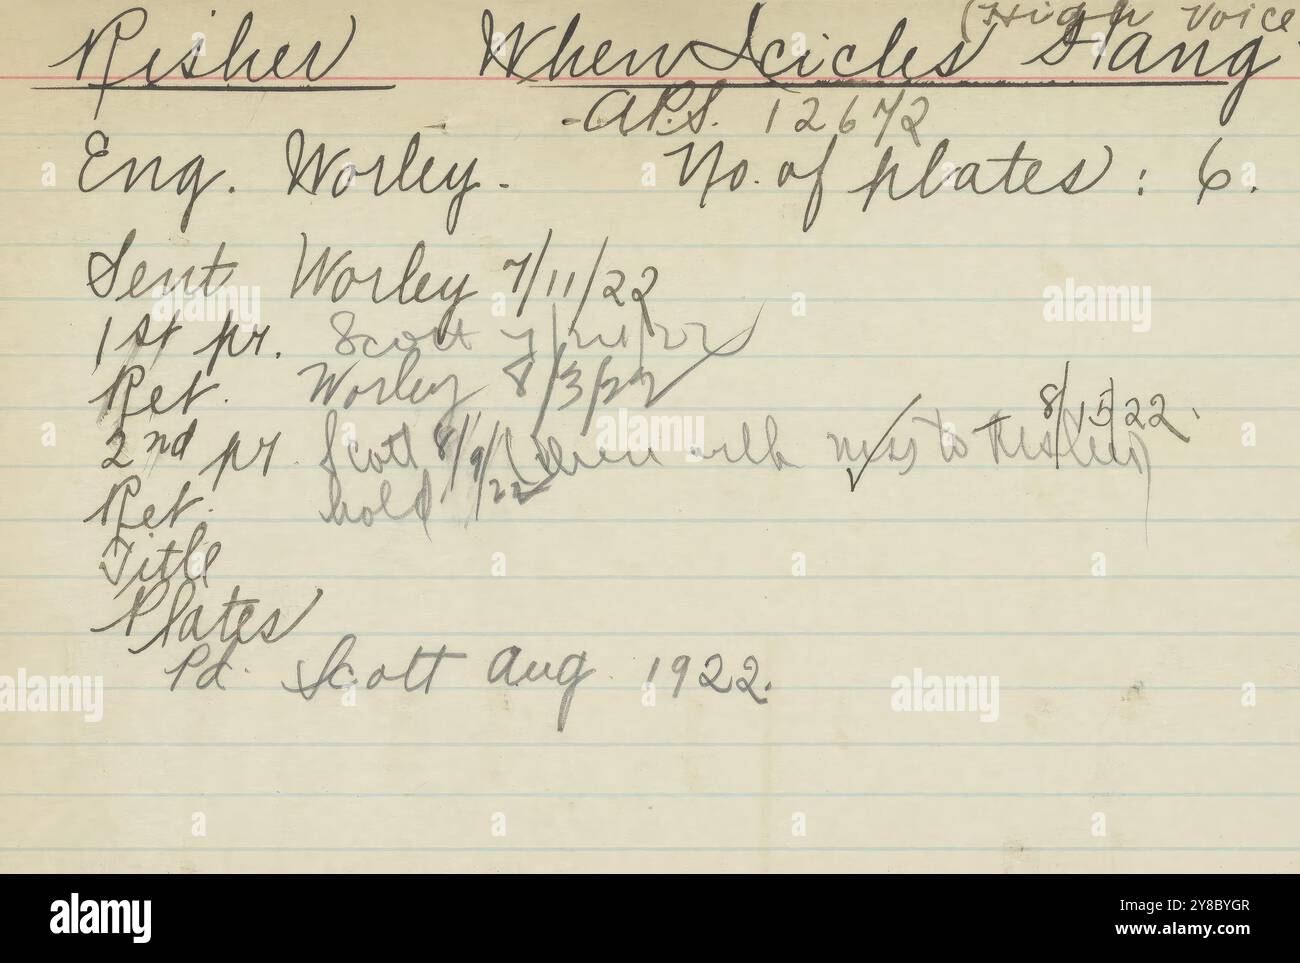 (High Voice
Risher When Icicles Hang
- A.P.S. 12672
Eng. Worley. No. of plates: 6.
Sent Worley 7/11/22
1st pr. Scott 7/24/22
Ret. Worley 8/3/22 8/15/22.
2nd pr. Scott 8/9/22 with mss to Risher
Ret. hold
Title
Plates
Pd. Scott Aug. 1922.
alamy
Image ID: 2Y8BYGR
www.alamy.com